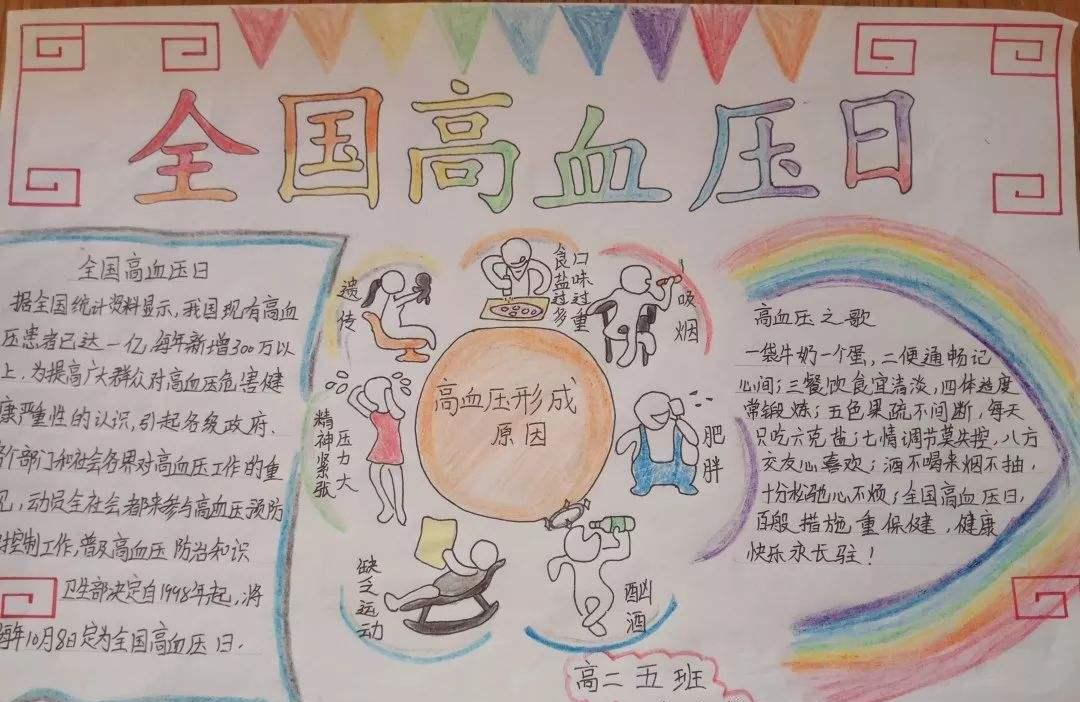 全国高血压日
全国高血压日
据全国统计资料显示,我国现有高血
压患者已达一亿,每年新增300万以
上.为提高广大群众对高血压危害健
康严重性的认识,引起各级政府.
各个部门和社会各界对高血压工作的重
见,动员全社会都来参与高血压预防
控制工作,普及高血压防治知识
卫生部决定自1998年起,将
每年10月8日定为全国高血压日.
遗传
口味过重
食盐过多
吸烟
肥胖
酗酒
缺乏运动
压力大
精神紧张
高血压形成
原因
高血压之歌
一袋牛奶一个蛋,二便通畅记
心间;三餐饮食宜清淡,四体适度
常锻炼;五色果疏不间断,每天
只吃六克盐;七情调节莫失控,八方
交友心喜欢;酒不喝来烟不抽,
十分松弛心不烦;全国高血压日,
百般措施重保健,健康
快乐永长驻!
高二五班